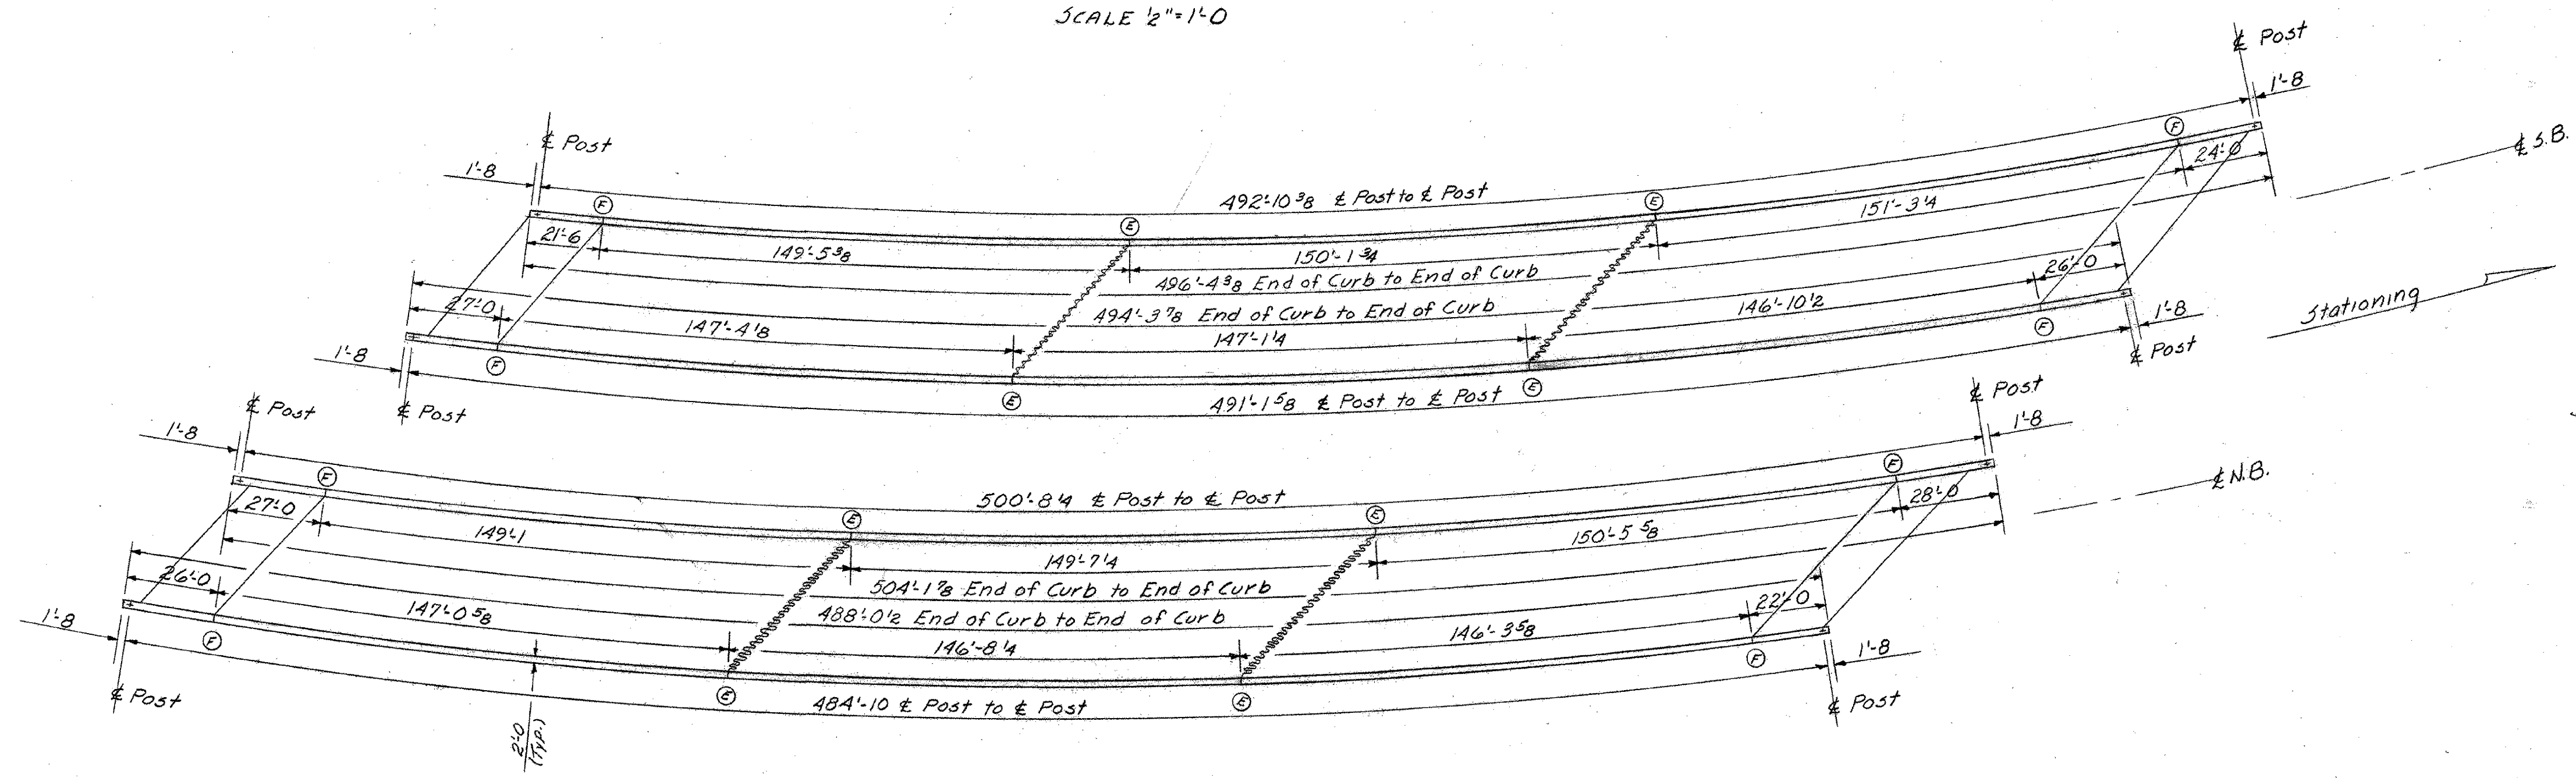 SCALE ½"=1'-0
℄ Post
1'-8
℄ S.B.
℄ Post
1'-8
F
24'-0
492'-10⅜ ℄ Post to ℄ Post
F
E
E
151'-3¼
21'-6
149'-5⅜
150'-1¾
496'-4⅜ End of Curb to End of Curb
26'-0
27'-0
494'-3⅞ End of Curb to End of Curb
146'-10½
147'-4⅛
147'-1¼
Stationing
1'-8
1'-8
F
F
℄ Post
E
E
491'-1⅝ ℄ Post to ℄ Post
℄ Post
℄ Post
℄ Post
1'-8
1'-8
F
F
℄ N.B.
500'-8¼ ℄ Post to ℄ Post
27'-0
28'-0
E
E
149'-1
149'-7¼
150'-5⅝
504'-1⅞ End of Curb to End of Curb
26'-0
488'-0½ End of Curb to End of Curb
22'-0
147'-0⅝
146'-8¼
146'-3⅝
1'-8
1'-8
F
F
E
E
484'-10 ℄ Post to ℄ Post
℄ Post
℄ Post
2'-0
(Typ.)